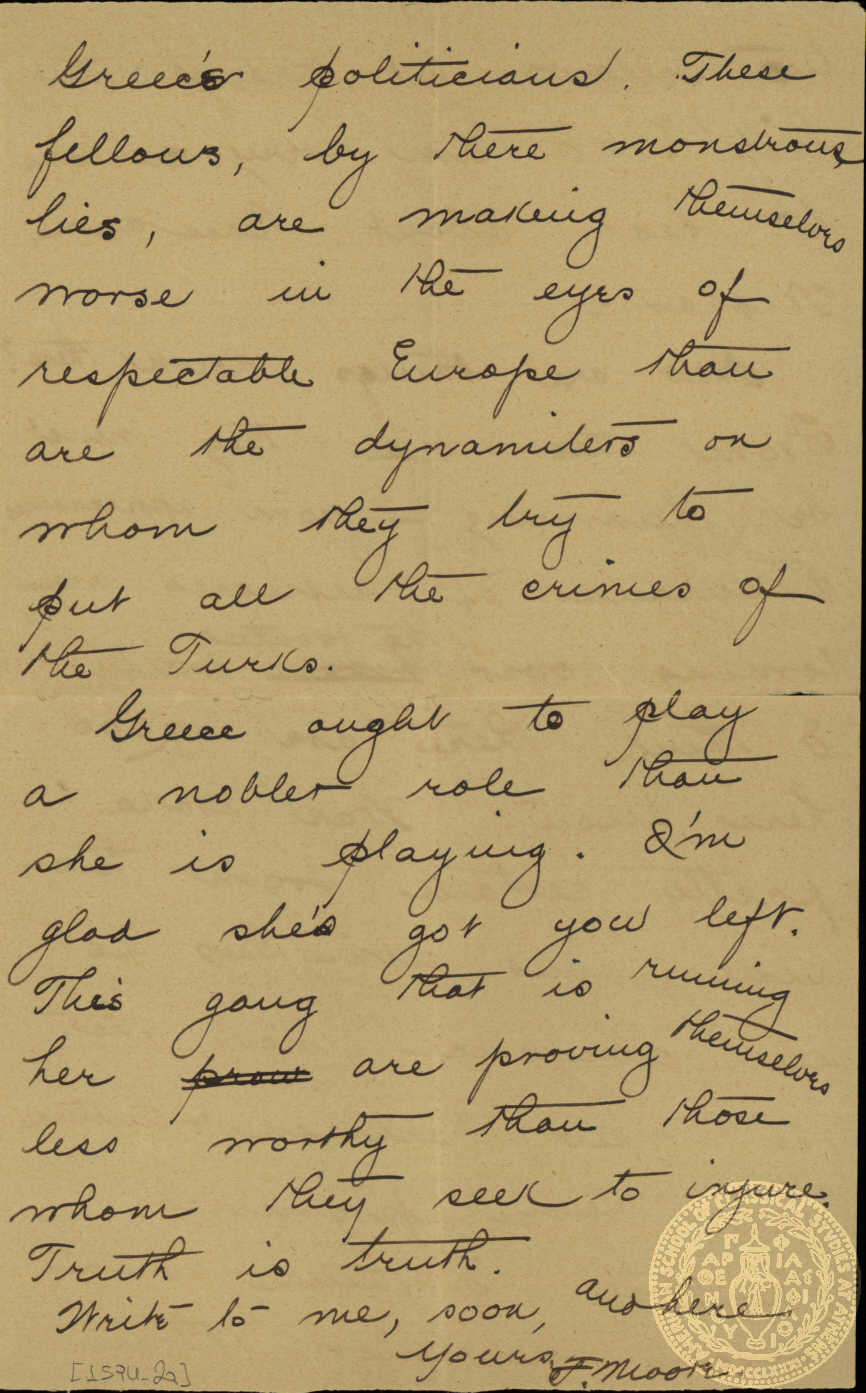 Greece's politicians. These
fellows, by there monstrous
lies, are making themselves
worse in the eyes of
respectable Europe than
are the dynamiters on
whom they try to
put all the crimes of
the Turks.
Greece ought to play
a nobler role than
she is playing. I'm
glad she's got you left.
This gang that is running
her prove are proving themselves
less worthy than those
whom they seek to injure.
Truth is truth.
Write to me, soon, and here.
Yours, F. Moore
[1594_2a]
AMERICAN SCHOOL OF CLASSICAL STUDIES AT ATHENS
MDCCCLXXXI
ΠΑΡΘΕΝΟΥ ΦΙΛΑΣ